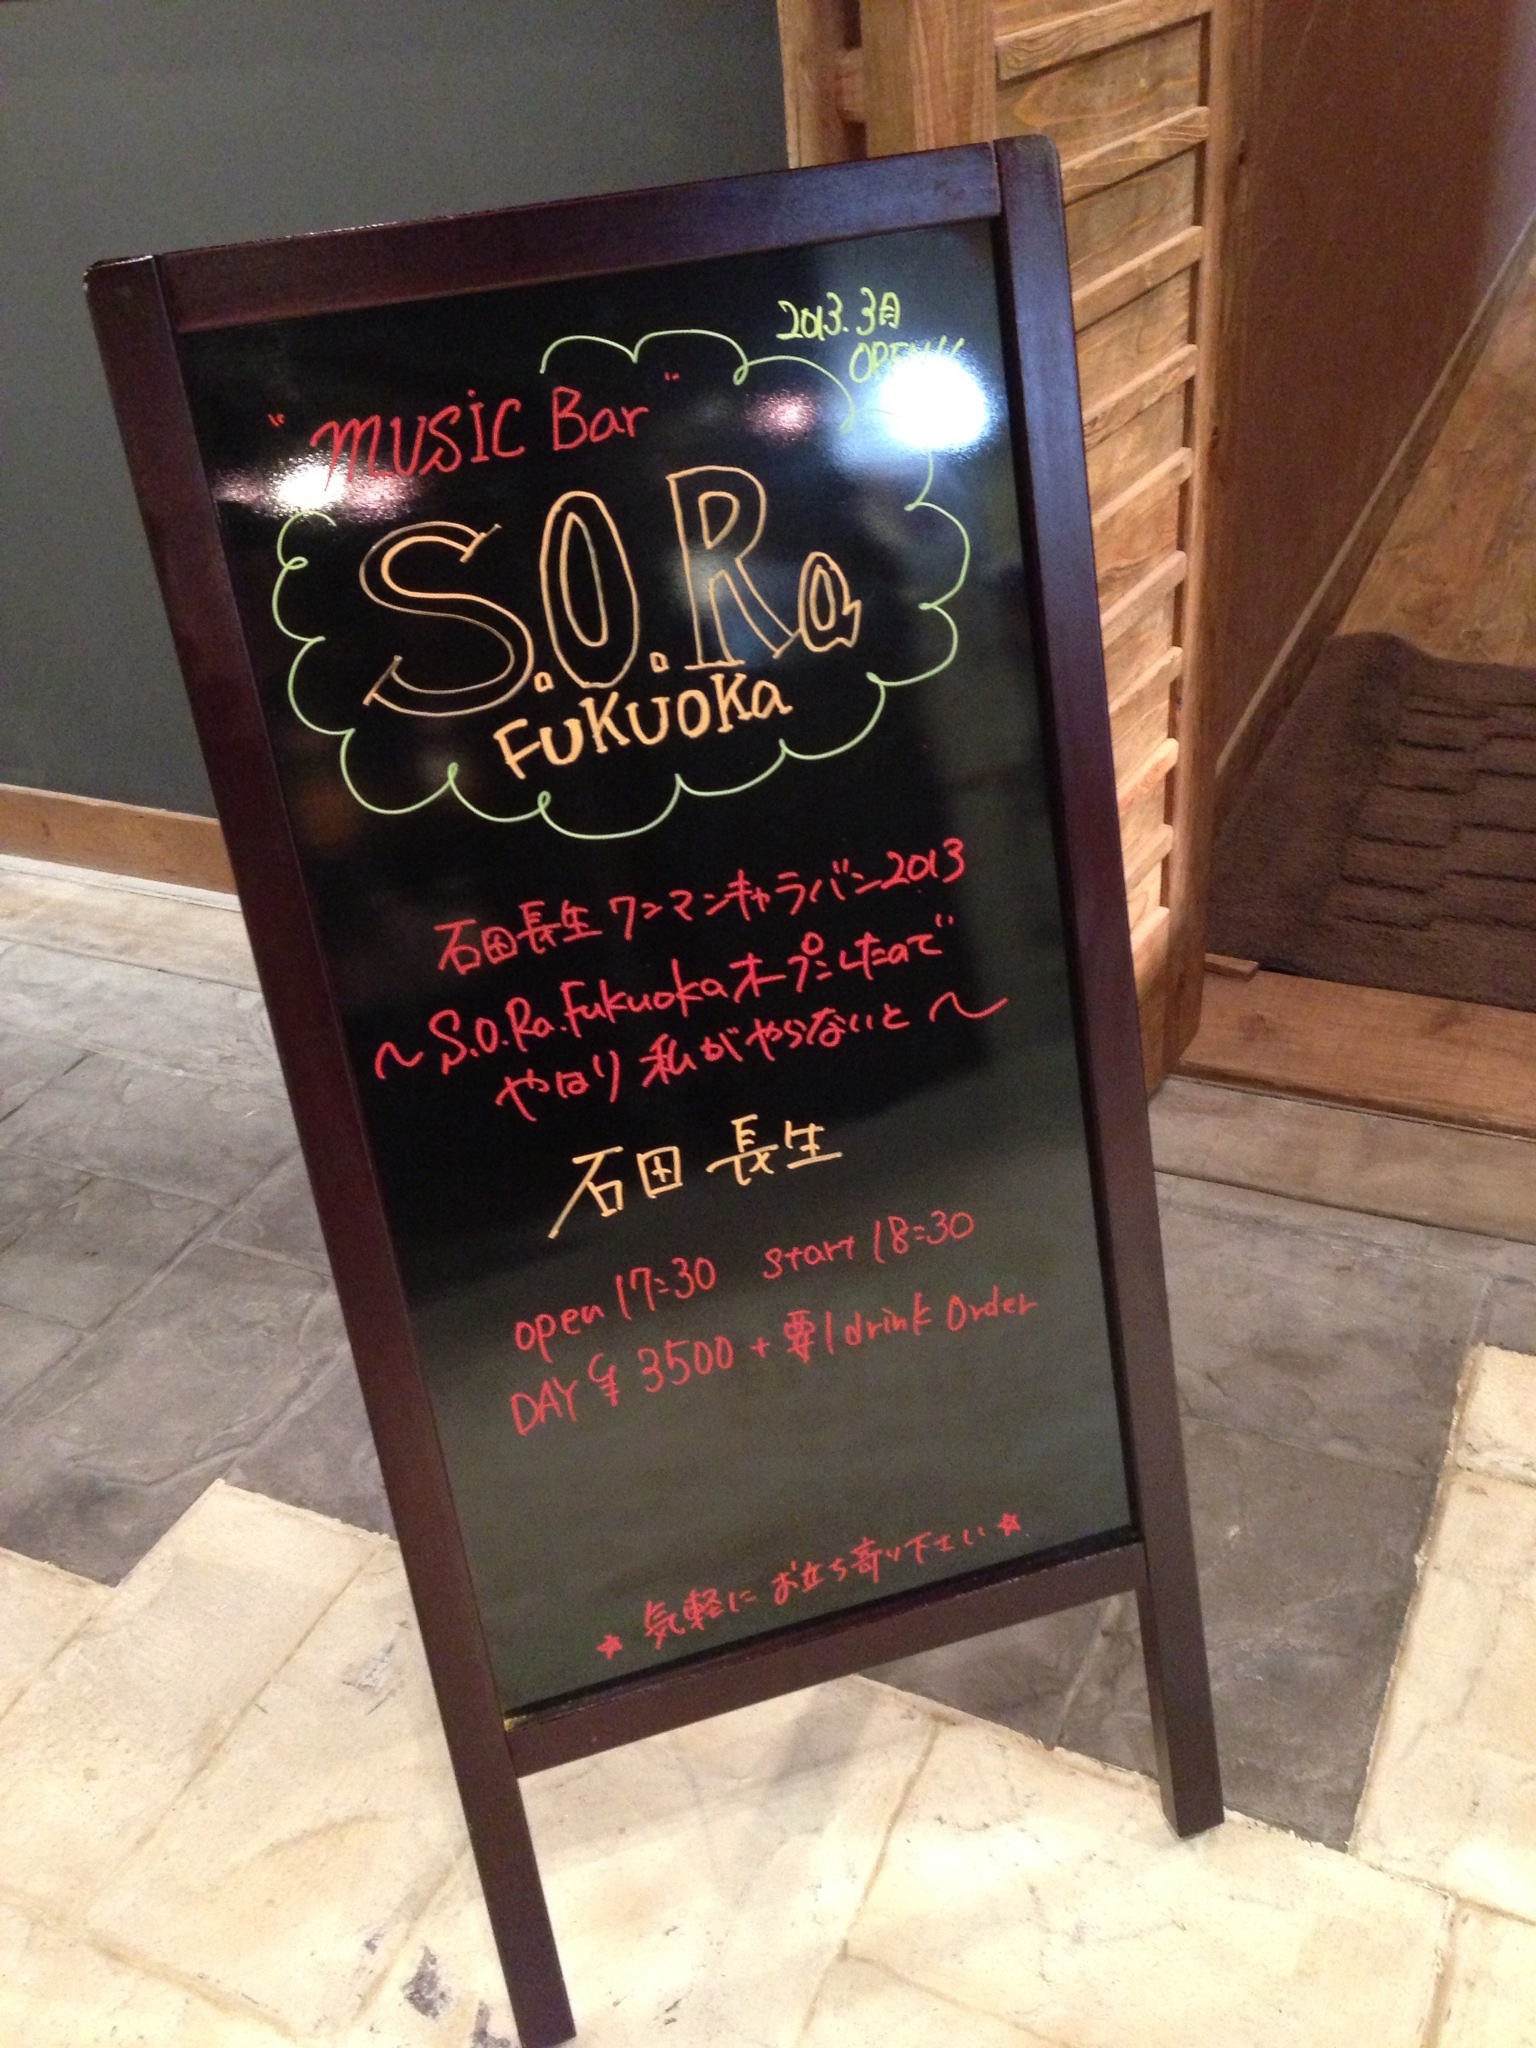 2013.3月
OPEN!!
"MUSiC Bar"
S.O.Ra
FUKUOKa
石田長生ワンマンキャラバン2013
〜S.O.Ra.Fukuokaオープンしたので
やはり私がやらないと〜
石田 長生
open 17:30 start 18:30
DAY ¥ 3500 + 要1drink Order
★ 気軽にお立ち寄り下さい ★